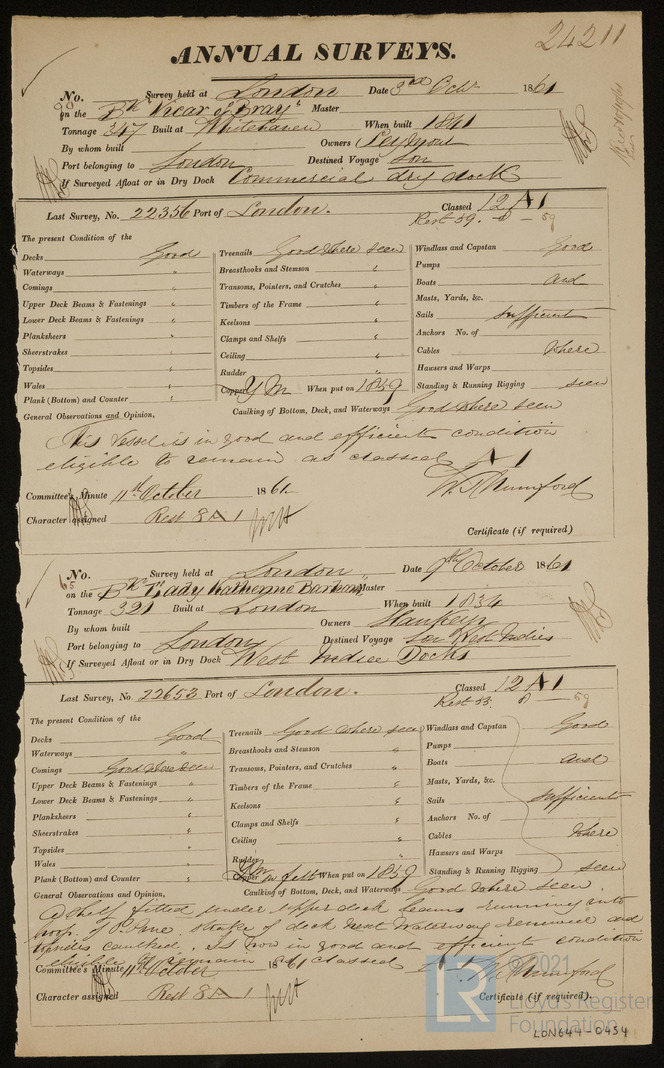 24211
ANNUAL SURVEYS.
No. Survey held at London Date 3rd Octr 1861
98 on the Bk "Vicar of Bray" Master
Tonnage 347 Built at Whitehaven When built 1841
By whom built Owners
Port belonging to London Destined Voyage Lon
If Surveyed Afloat or in Dry Dock Commercial dry dock
Last Survey, No. 22356 Port of London. Classed 12 A1
Rest 59. 8 — 59
The present Condition of the
Decks Good Treenails Good where seen Windlass and Capstan Good
Waterways " Breasthooks and Stemson " Pumps
Comings " Transoms, Pointers, and Crutches " Boats and
Upper Deck Beams & Fastenings " Timbers of the Frame " Masts, Yards, &c.
Lower Deck Beams & Fastenings " Keelsons " Sails sufficient
Planksheers " Clamps and Shelfs " Anchors No. of
Sheerstrakes " Ceiling " Cables where
Topsides " Rudder " Hawsers and Warps
Wales " Copper Y M When put on 1859 Standing & Running Rigging seen
Plank (Bottom) and Counter " Caulking of Bottom, Deck, and Waterways Good where seen
General Observations and Opinion,
This Vessel is in good and efficient condition
eligible to remain as classed A1
W. Mumford
Committee's Minute 11th October 1861
Character assigned Rest 8 A 1
Certificate (if required)
No. Survey held at London Date 9th October 1861
65 on the Bk "Lady Katherine Barham" Master
Tonnage 321 Built at London When built 1834
By whom built Owners Hankeyn
Port belonging to London Destined Voyage Lon West Indies
If Surveyed Afloat or in Dry Dock West India Docks
Last Survey, No. 22653 Port of London. Classed 12 A1
Rest 53. 8 — 59
The present Condition of the
Decks Good Treenails Good where seen Windlass and Capstan Good
Waterways " Breasthooks and Stemson " Pumps
Comings Good where seen Transoms, Pointers, and Crutches " Boats and
Upper Deck Beams & Fastenings " Timbers of the Frame " Masts, Yards, &c.
Lower Deck Beams & Fastenings " Keelsons " Sails sufficient
Planksheers " Clamps and Shelfs " Anchors No. of
Sheerstrakes " Ceiling " Cables where
Topsides " Rudder " Hawsers and Warps
Wales " Copper Y m on felt When put on 1859 Standing & Running Rigging seen
Plank (Bottom) and Counter " Caulking of Bottom, Deck, and Waterways Good where seen
General Observations and Opinion,
A shelf fitted under upper deck beams running into
hoop. of Vane. strake of deck next Waterway renewed and
topsides caulked. Is now in good and efficient condition
eligible to remain as classed A 1. W. Mumford
Committee's Minute 11th October 1861
Character assigned Rest 8 A 1
Certificate (if required).
© 2021
LR
Lloyd's Register
Foundation
LON644-0454